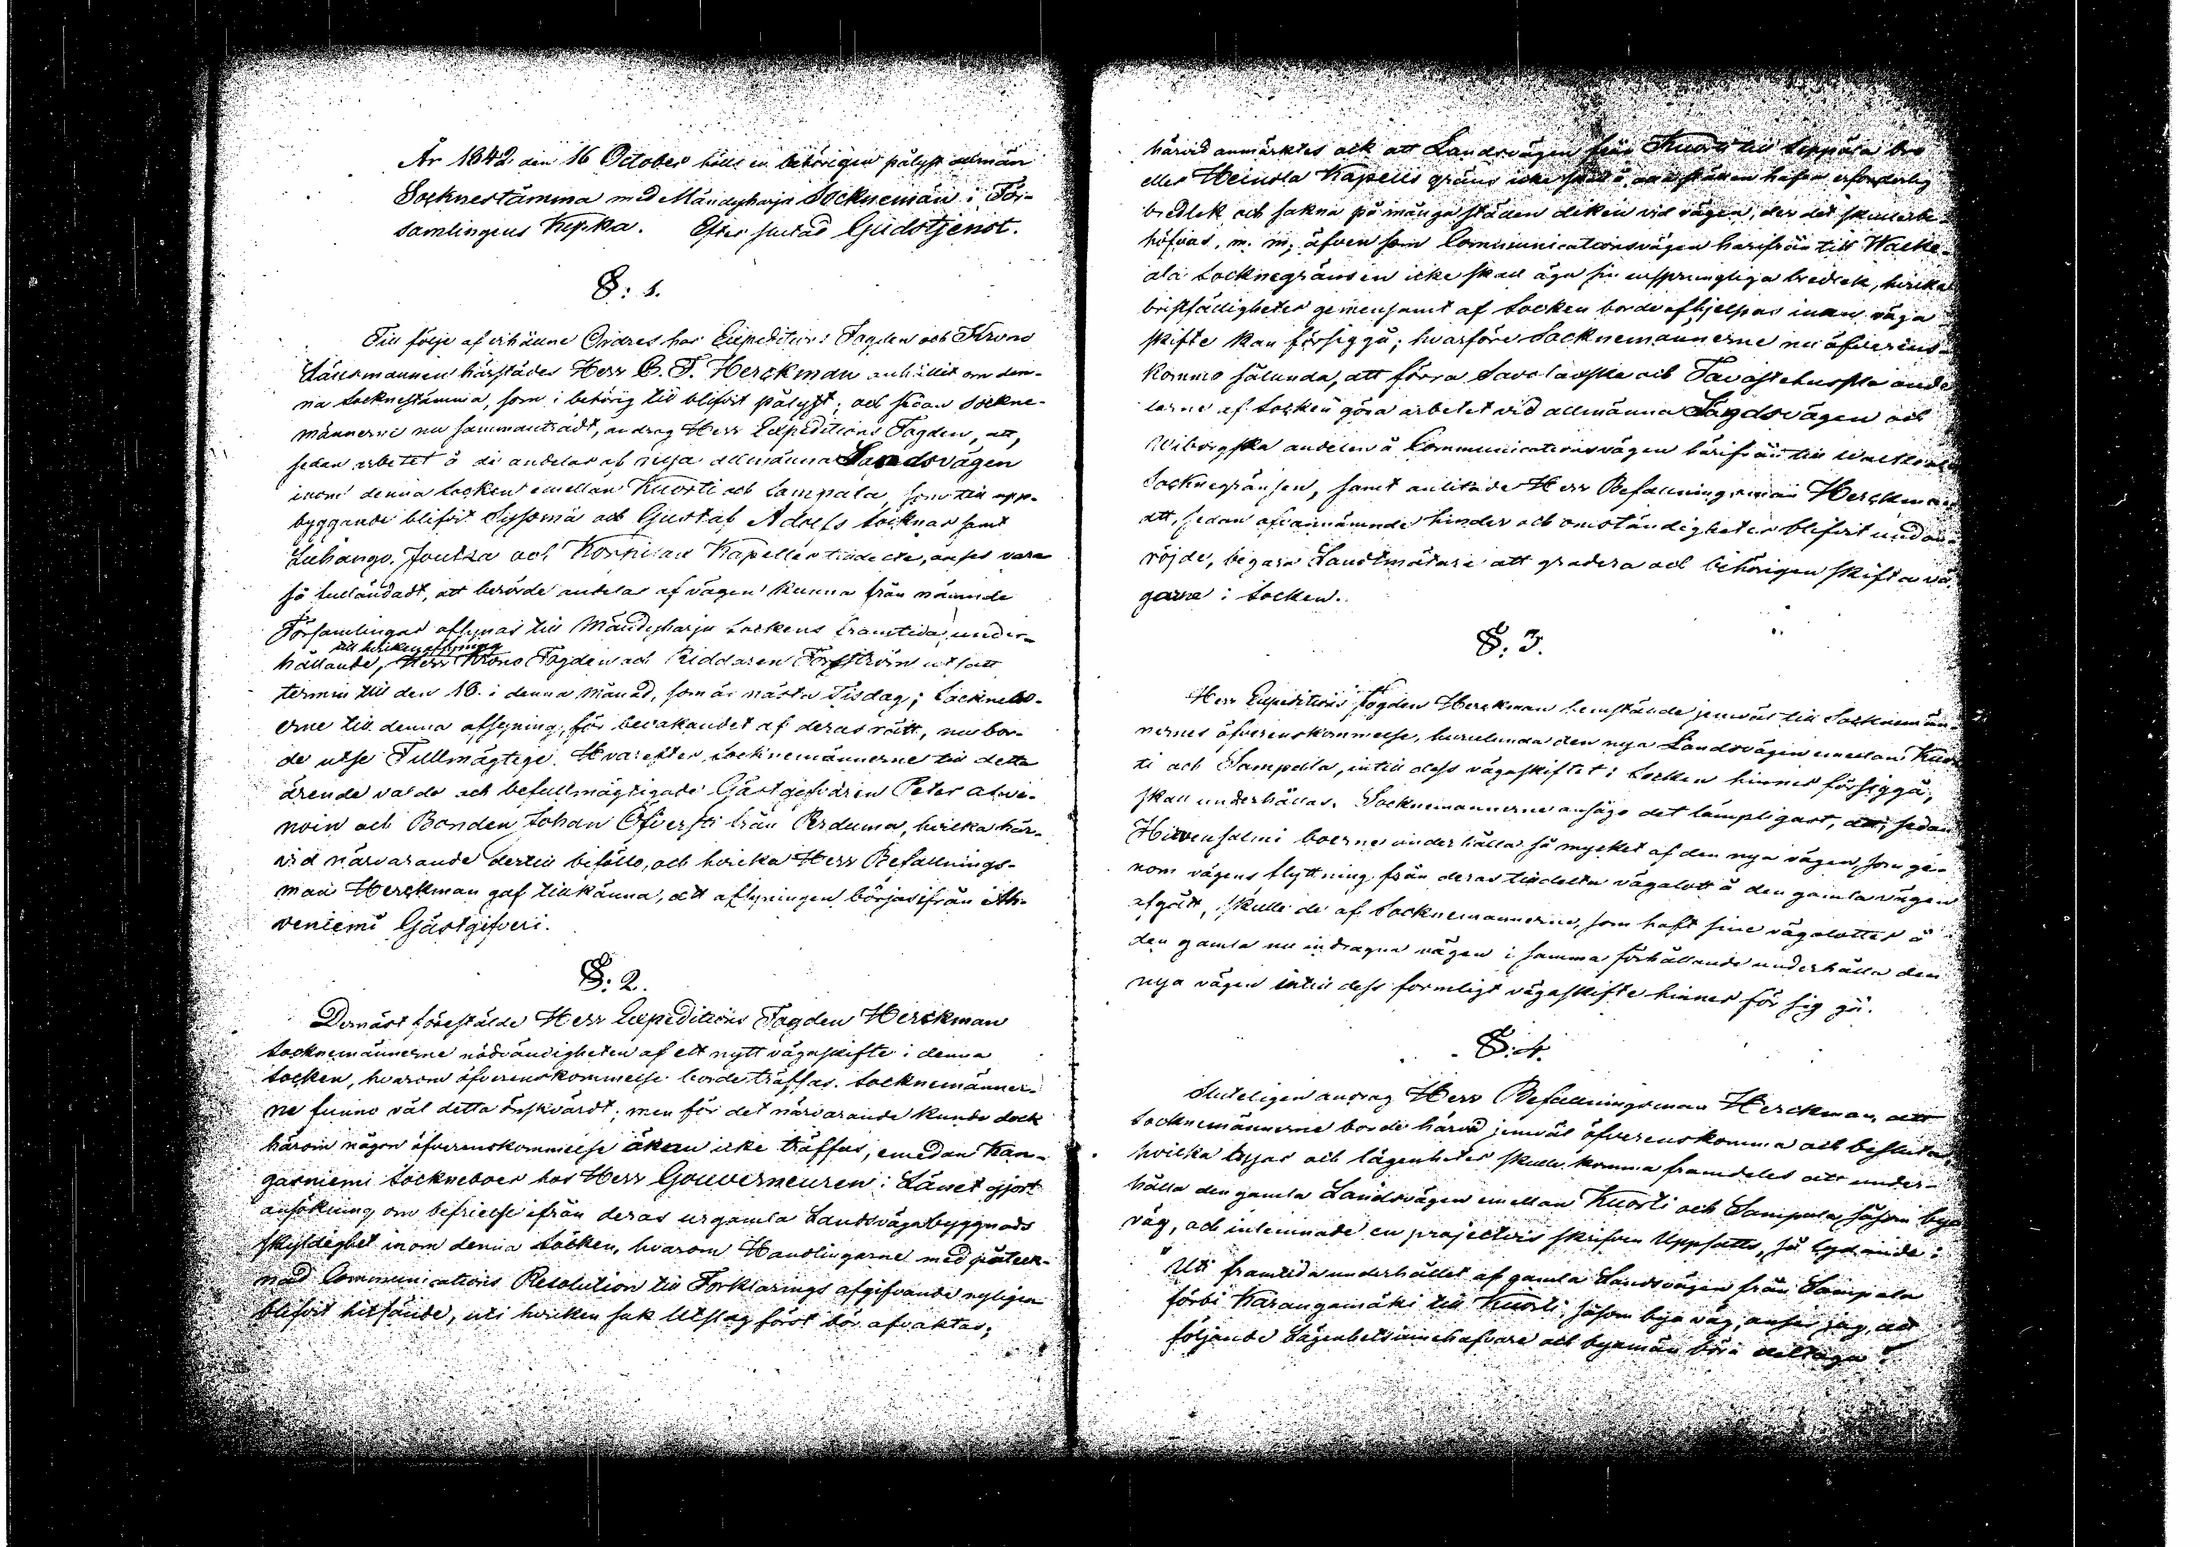 År 1842 den 16 October hölls en behörigen pålyst allmän
Socknestämma med Mändyharju Socknemän i För-
samlingens Kyrka. Efter slutad Gudstjenst.
§: 1.
Till följe af erhållne Ordres har Expeditions Fogden och Krono
Länsmannen härstädes Herr C. F. Herckman anhållit om den-
na Socknestämma, som i behörig tid blifvit pålyst; och sedan Sockne-
männerne nu sammanträdt, androg Herr Expeditions Fogden, att,
sedan arbetet å de andelar af nya allmänna Landsvägen
inom denna Socken emellan Kuorti och Sampala, som till upp-
byggande blifvit Sysomä och Gustaf Adolfs Socknar samt
Luhango, Joutza och Korpilax Kapeller tilldelte, anses vara
så fulländadt, att berörde andelar af vägen kunna från nämnde
Församlingar afsynas till Mändyharju Sockens framtida under-
till hvilken afsyning
hållande, Herr Krono Fogden och Riddaren Forsström utsatt
termin till den 18. i denna Månad, som är nästa Tisdag; Socknebo-
erne till denna afsyning, för bevakandet af deras rätt, nu bor-
de utse Fullmägtige. Hvarefter Socknemännerne till detta
ärende valde och befullmägtigade Gästgifvaren Peter Ahve-
noin och Bonden Johan Öfversti från Perduma, hvilka här-
vid närvarande dertill beföllo, och hvilka Herr Befallnings-
man Herckman gaf tillkänna, att afsyningen börjas ifrån Ah-
veniemi Gästgifveri.
§: 2.
Dernäst föreställde Herr Expeditions Fogden Herckman
Socknemännerne nödvändigheten af ett nytt vägaskifte i denna
Socken, hvarom öfverenskommelse borde träffas. Socknemänner-
ne funno väl detta önskvärdt; men för det närvarande kunde dock
härom någon öfverenskommelse ännu icke träffas, emedan Kan-
gasniemi Sockneboer hos Herr Gouverneuren i Länet gjort
ansökning om befrielse ifrån deras urgamla Landsvägabyggnads
skyldighet inom denna Socken, hvarom Handlingarne med påteck-
nad Communications Resolution till Förklarings afgifvande nyligen
blifvit hitsände, uti hvilken sak Utslag först bör afvaktas;
härvid anmärktes ock att Landsvägen från Kuorti till Leppälä bro
eller Heinola Kapells gräns icke skall å alla ställen hafva erforderlig
bredlek och sakna på många ställen diken vid vägen, der det skulle be-
höfvas, m. m; äfven som Communicationsvägen härifrån till Walke-
ala Socknegränsen icke skall äga sin ursprungliga bredlek, hvilka
bristfälligheter gemensamt af Socken borde afhjelpas innan väga
skifte kan försiggå; hvarföre Socknemännerne nu öfverens-
kommo sålunda, att förra Savolaxska och Tavastehusska ande
larne af Socken göra arbetet vid allmänna Landsvägen och
Wiborgska andelen å Communicationsvägen härifrån till Walkeala
Socknegränsen, samt anlitade Herr Befallningsman Herckman
att, sedan ofvannämnde hinder och omständigheter blifvit undan-
röjde, begära Landtmätare att gradera och behörigen skifta vä-
garne i Socken.
§: 3.
Herr Expeditions Fogden Herckman hemställde jemväl till Socknemän-
nernes öfverenskommelse, hurulunda den nya Landsvägen emellan Kuor
ti och Sampala, intill dess vägaskiftet i Socken hinner försiggå,
skall underhållas. Socknemännerne ansågo det lämpligast, att, sedan
Hirvensalmi boerne underhålla så mycket af den nya vägen, som ge-
nom vägens flyttning från deras tilldelta vägalott å den gamla vägen
afgått, skulle de af Socknemännerne, som haft sine vägalotter å
den gamla nu indragna vägen i samma förhållande underhålla den
nya vägen intill dess formligt vägaskifte hinner för sig gå.
§: 4.
Sluteligen androg Herr Befallningsman Herckman, att
Socknemännerne borde härvid jemväl öfverenskomma och besluta,
hvilka byar och lägenheter skulle komma framdeles att under-
hålla den gamla Landsvägen emellan Kuorti och Sampala såsom bya
väg, och inlemnade en projectvis skrifven Uppsatts, så lydande:
"Uti framtida underhållet af gamla Landsvägen från Sampala
förbi Karangamäki till Kuorti såsom bya väg, anser jag, att
följande Lägenhetsinnehafvare och byamän böra deltaga: